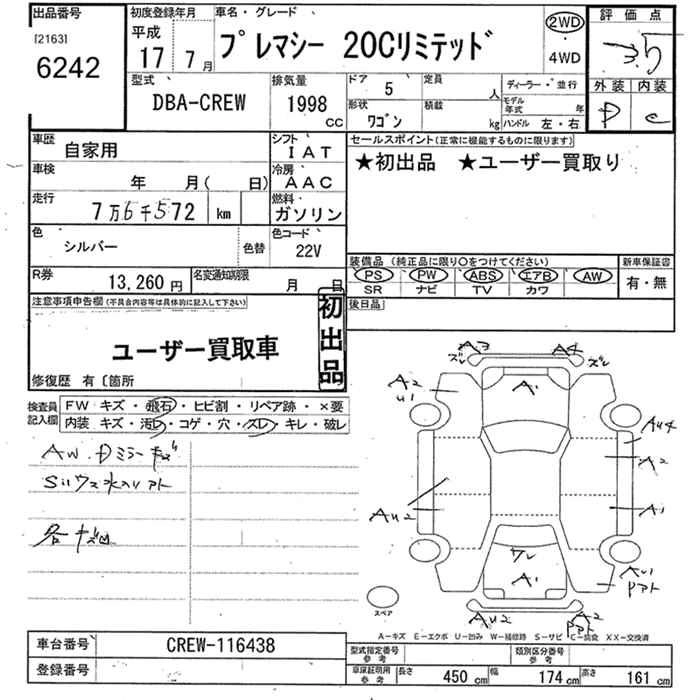 出品番号
[2163]
6242
初度登録年月
平成
17 7 月
車名・グレード
プレマシー 20Cリミテッド
2WD
・
4WD
評価点
3.5
外装 内装
D C
型式
DBA-CREW
排気量
1998
CC
ドア
5
定員
人
形状
ワゴン
積載
kg
ディーラー・並行
モデル年式 年
ハンドル 左・右
車歴
自家用
シフト
IAT
車検
年 月( 日)
冷房
AAC
走行
7万6千572 km
燃料
ガソリン
色
シルバー
色替
色コード
22V
R券
13,260 円
名変通知期限
月 日
セールスポイント(正常に機能するものに限ります)
★初出品 ★ユーザー買取り
装備品 (純正品に限り○をつけてください)
PS PW ABS エアB AW
SR ナビ TV カワ
新車保証書
有・無
後日品
注意事項申告欄(不具合内容等は具体的に記入して下さい)
初出品
ユーザー買取車
修復歴 有〔箇所
検査員記入欄
FW キズ・飛石・ヒビ割・リペア跡・×要
内装 キズ・汚レ・コゲ・穴・スレ・キレ・破レ
AW.Dミラーキズ
各キズ凹
A3
ズレ
A4
ズレ
A2
U1
A1
AU4
A2
AU2
A1
ワレ
A1
AU1
Pアト
AU2
A2
Pアト
スペア
A-キズ E-エクボ U-凹み W-補修跡 S-サビ C-腐食 XX-交換済
車台番号
CREW-116438
登録番号
型式指定番号
参考
類別区分番号
参考
車庫証明用
参考
長さ 450 cm 幅 174 cm 高さ 161 cm